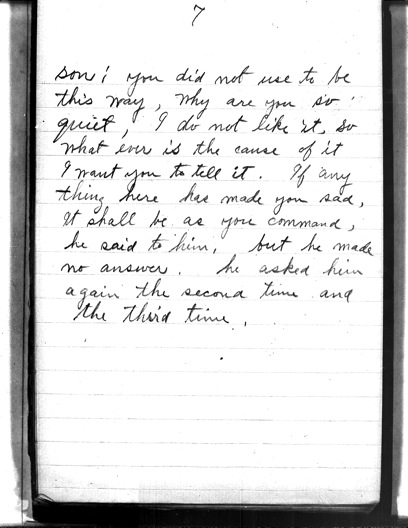 7
son; you did not use to be
this way, why are you so
quiet, I do not like it, so
what ever is the cause of it
I want you to tell it. If any
thing here has made you sad,
It shall be as you command,
he said to him, but he made
no answer. he asked him
again the second time and
the third time.